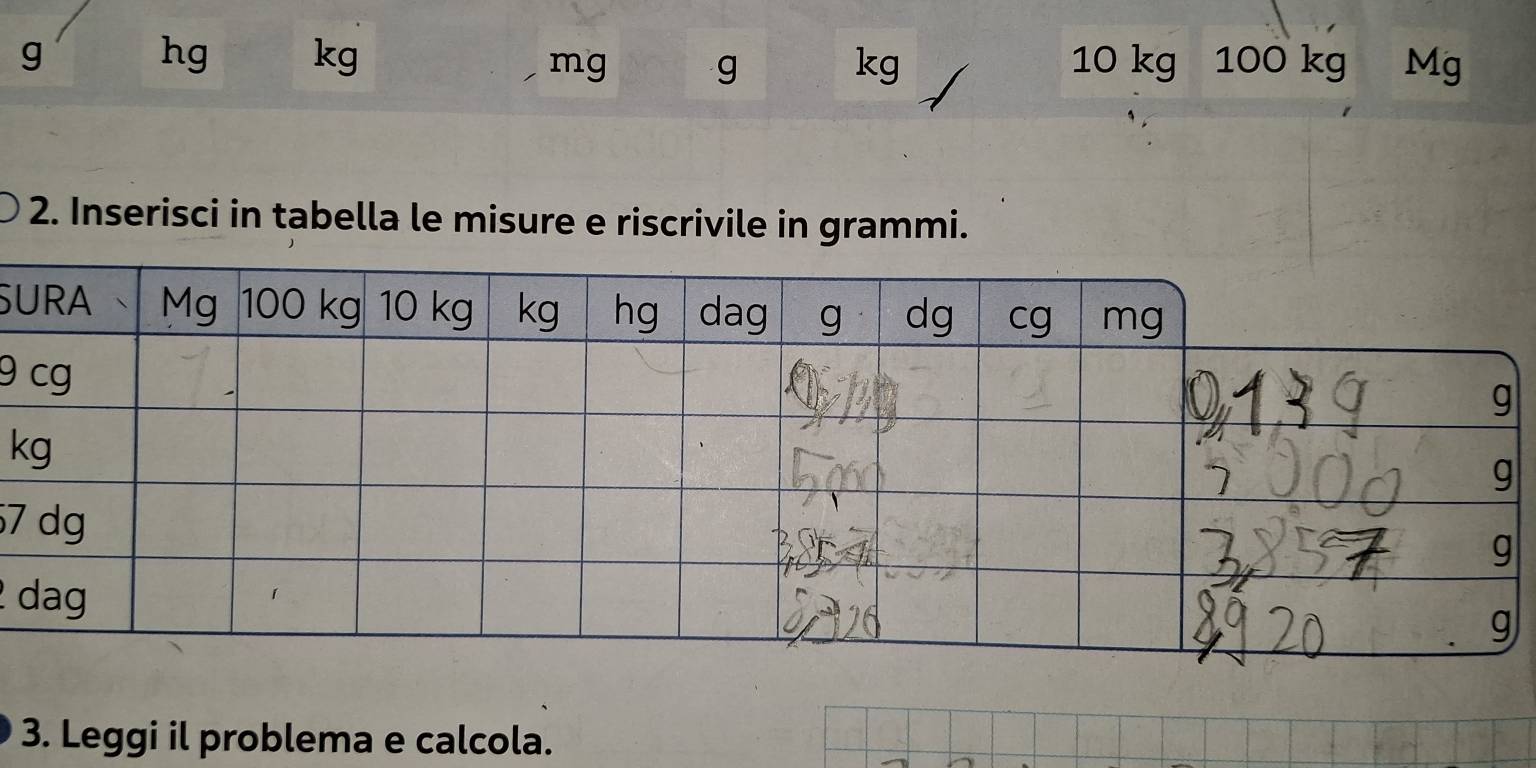 g hg kg mg g kg 10 kg 100 kg Mg
2. Inserisci in tabella le misure e riscrivile in grammi.
SURA Mg 100 kg 10 kg kg hg dag g dg cg mg
9 cg 0,139 g
kg 5000 g
57 dg 3,857 3,857 g
2 dag 8,920 8,920 g
3. Leggi il problema e calcola.